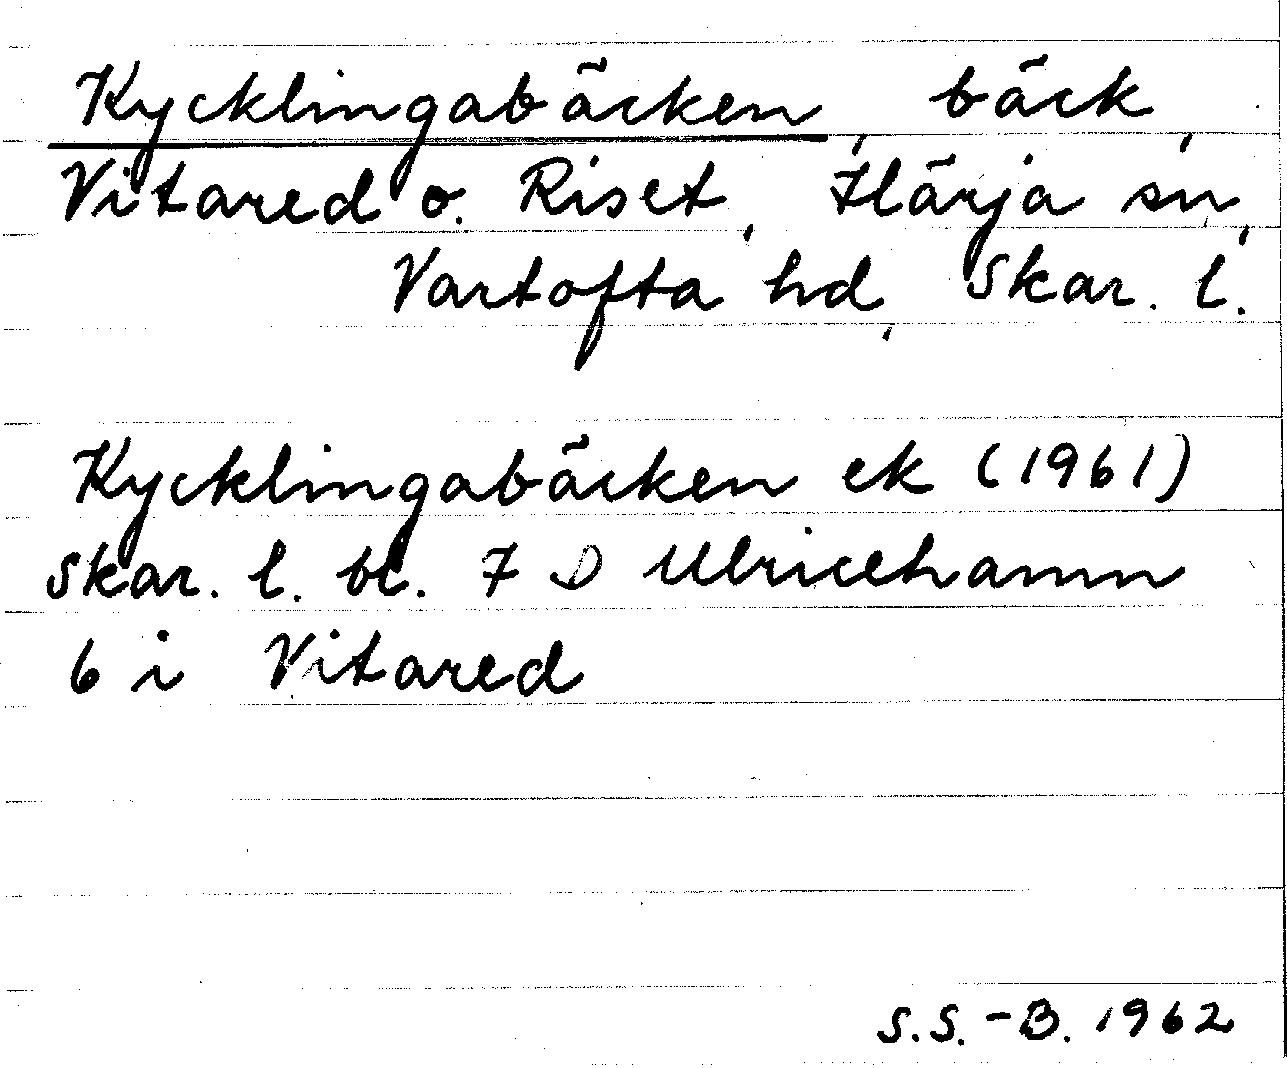 Kycklingabäcken, bäck,
Vitared o. Riset, Härja sn,
Vartofta hd, Skar. l.
Kycklingabäcken ek (1961)
Skar. l. bl. 7 D Ulricehamn
6 i Vitared
S.S.-B. 1962